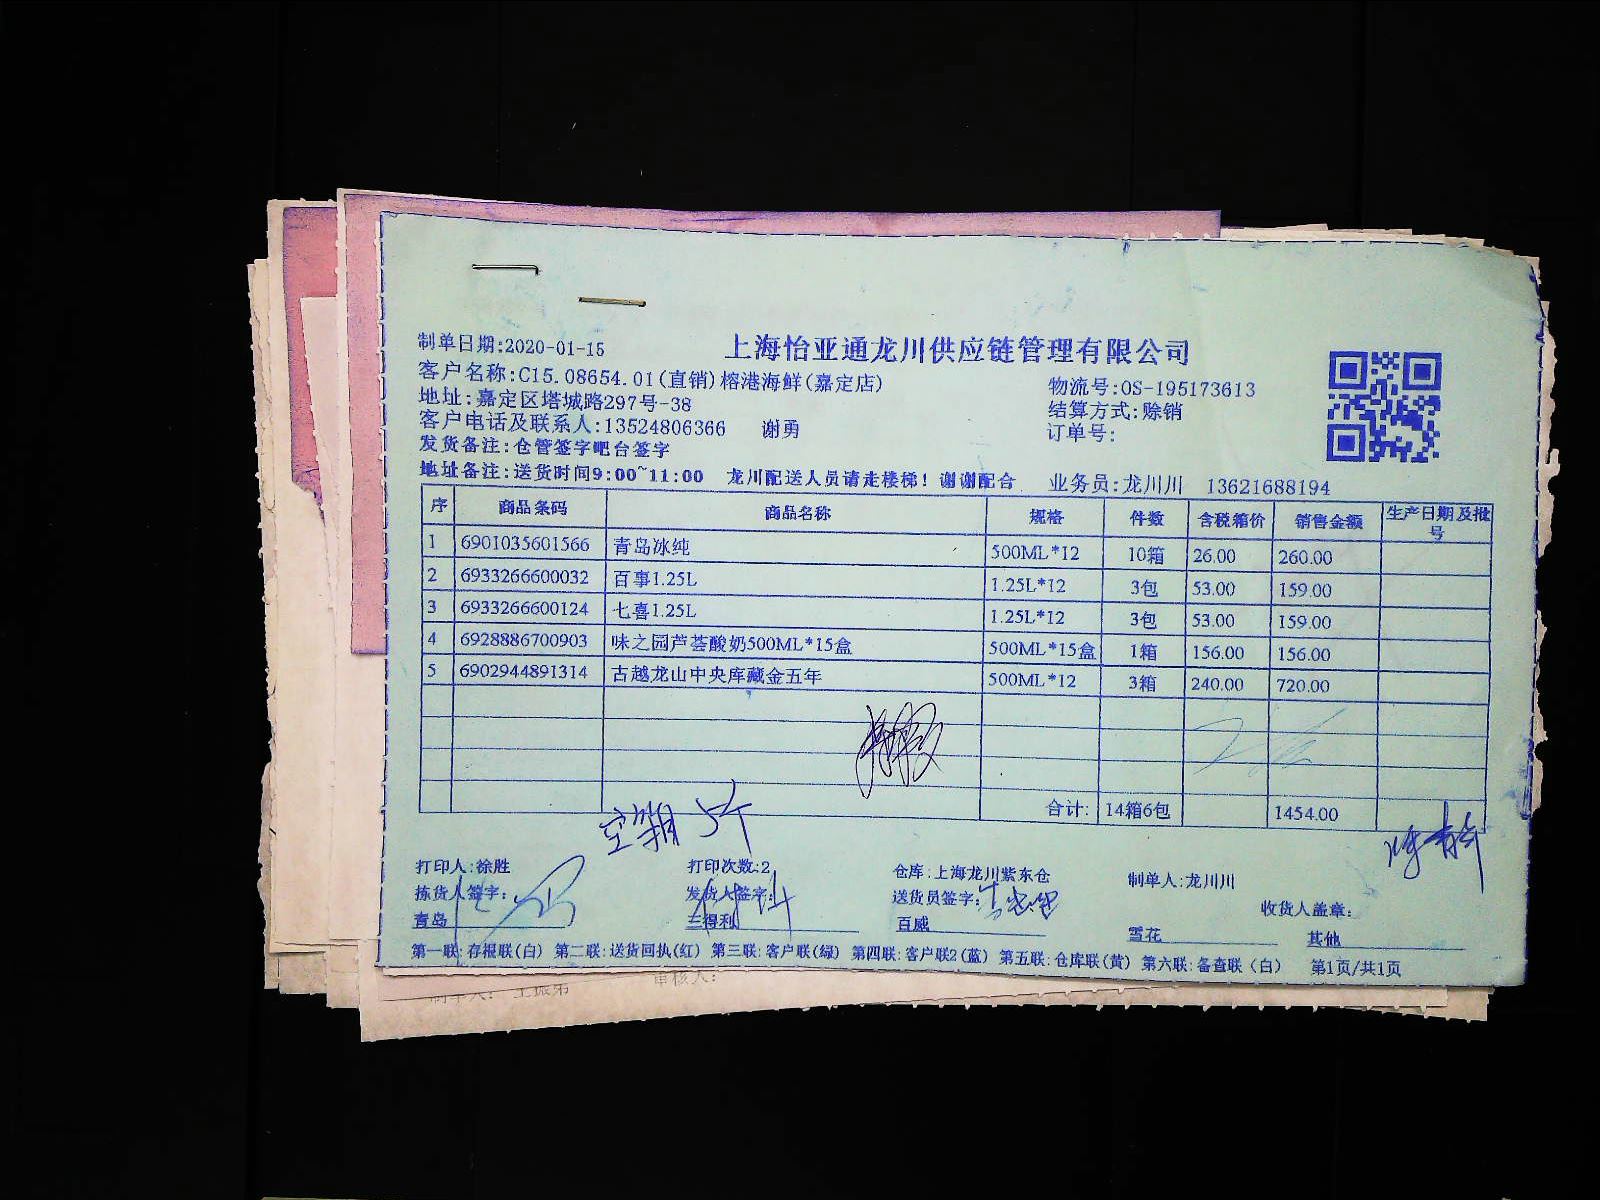 上海怡亚通龙川供应链管理有限公司
制单日期:2020-01-15
客户名称:C15.08654.01(直销)榕港海鲜(嘉定店) 物流号:OS-195173613
地址:嘉定区塔城路297号-38 结算方式:赊销
客户电话及联系人:13524806366 谢勇 订单号:
发货备注:仓管签字吧台签字
地址备注:送货时间9:00~11:00 龙川配送人员请走楼梯！谢谢配合 业务员:龙川川 13621688194
序 商品条码 商品名称 规格 件数 含税箱价 销售金额 生产日期及批号
1 6901035601566 青岛冰纯 500ML*12 10箱 26.00 260.00
2 6933266600032 百事1.25L 1.25L*12 3包 53.00 159.00
3 6933266600124 七喜1.25L 1.25L*12 3包 53.00 159.00
4 6928886700903 味之园芦荟酸奶500ML*15盒 500ML*15盒 1箱 156.00 156.00
5 6902944891314 古越龙山中央库藏金五年 500ML*12 3箱 240.00 720.00
合计: 14箱6包 1454.00
打印人:徐胜 打印次数:2 仓库:上海龙川紫东仓 制单人:龙川川
拣货人签字: 发货人签字: 送货员签字: 收货人盖章:
青岛 三得利 百威 雪花 其他
第一联:存根联(白) 第二联:送货回执(红) 第三联:客户联(绿) 第四联:客户联2(蓝) 第五联:仓库联(黄) 第六联:备查联(白) 第1页/共1页
制单人: 审核人: